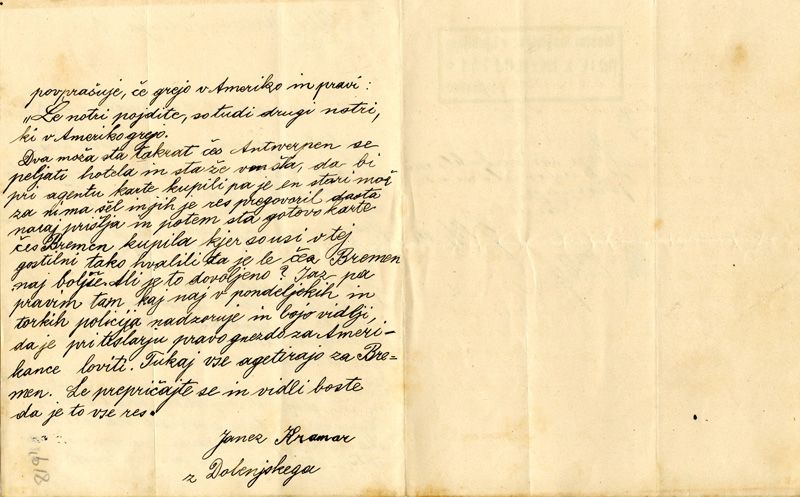 povprašuje, če grejo v Ameriko in pravi:
"Le notri pojdite, so tudi drugi notri,
ki v Ameriko grejo.
Dva moža sta takrat čes Antwerpen se
peljati hotela in sta že vun šla, da bi
pri agentu karte kupili pa je en stari mož
za nima šel in jih je res pregovoril da sta
nazaj prišla in potem sta gotovo karte
čes Bremen kupila kjer so usi v tej
gostilni tako hvalili da je le čes Bremen
naj boljše. Ali je to dovoljeno? Jaz pa
pravim tam kaj naj v pondeljekih in
torkih policija nadzoruje in bojo vidlji,
da je pri tišlarju pravo gnezdo za Ameri-
kance loviti. Tukaj vse agetirajo za Bre-
men. Le prepričajte se in vidli boste
da je to vse res.
Janez Kramar
z Dolenjskega